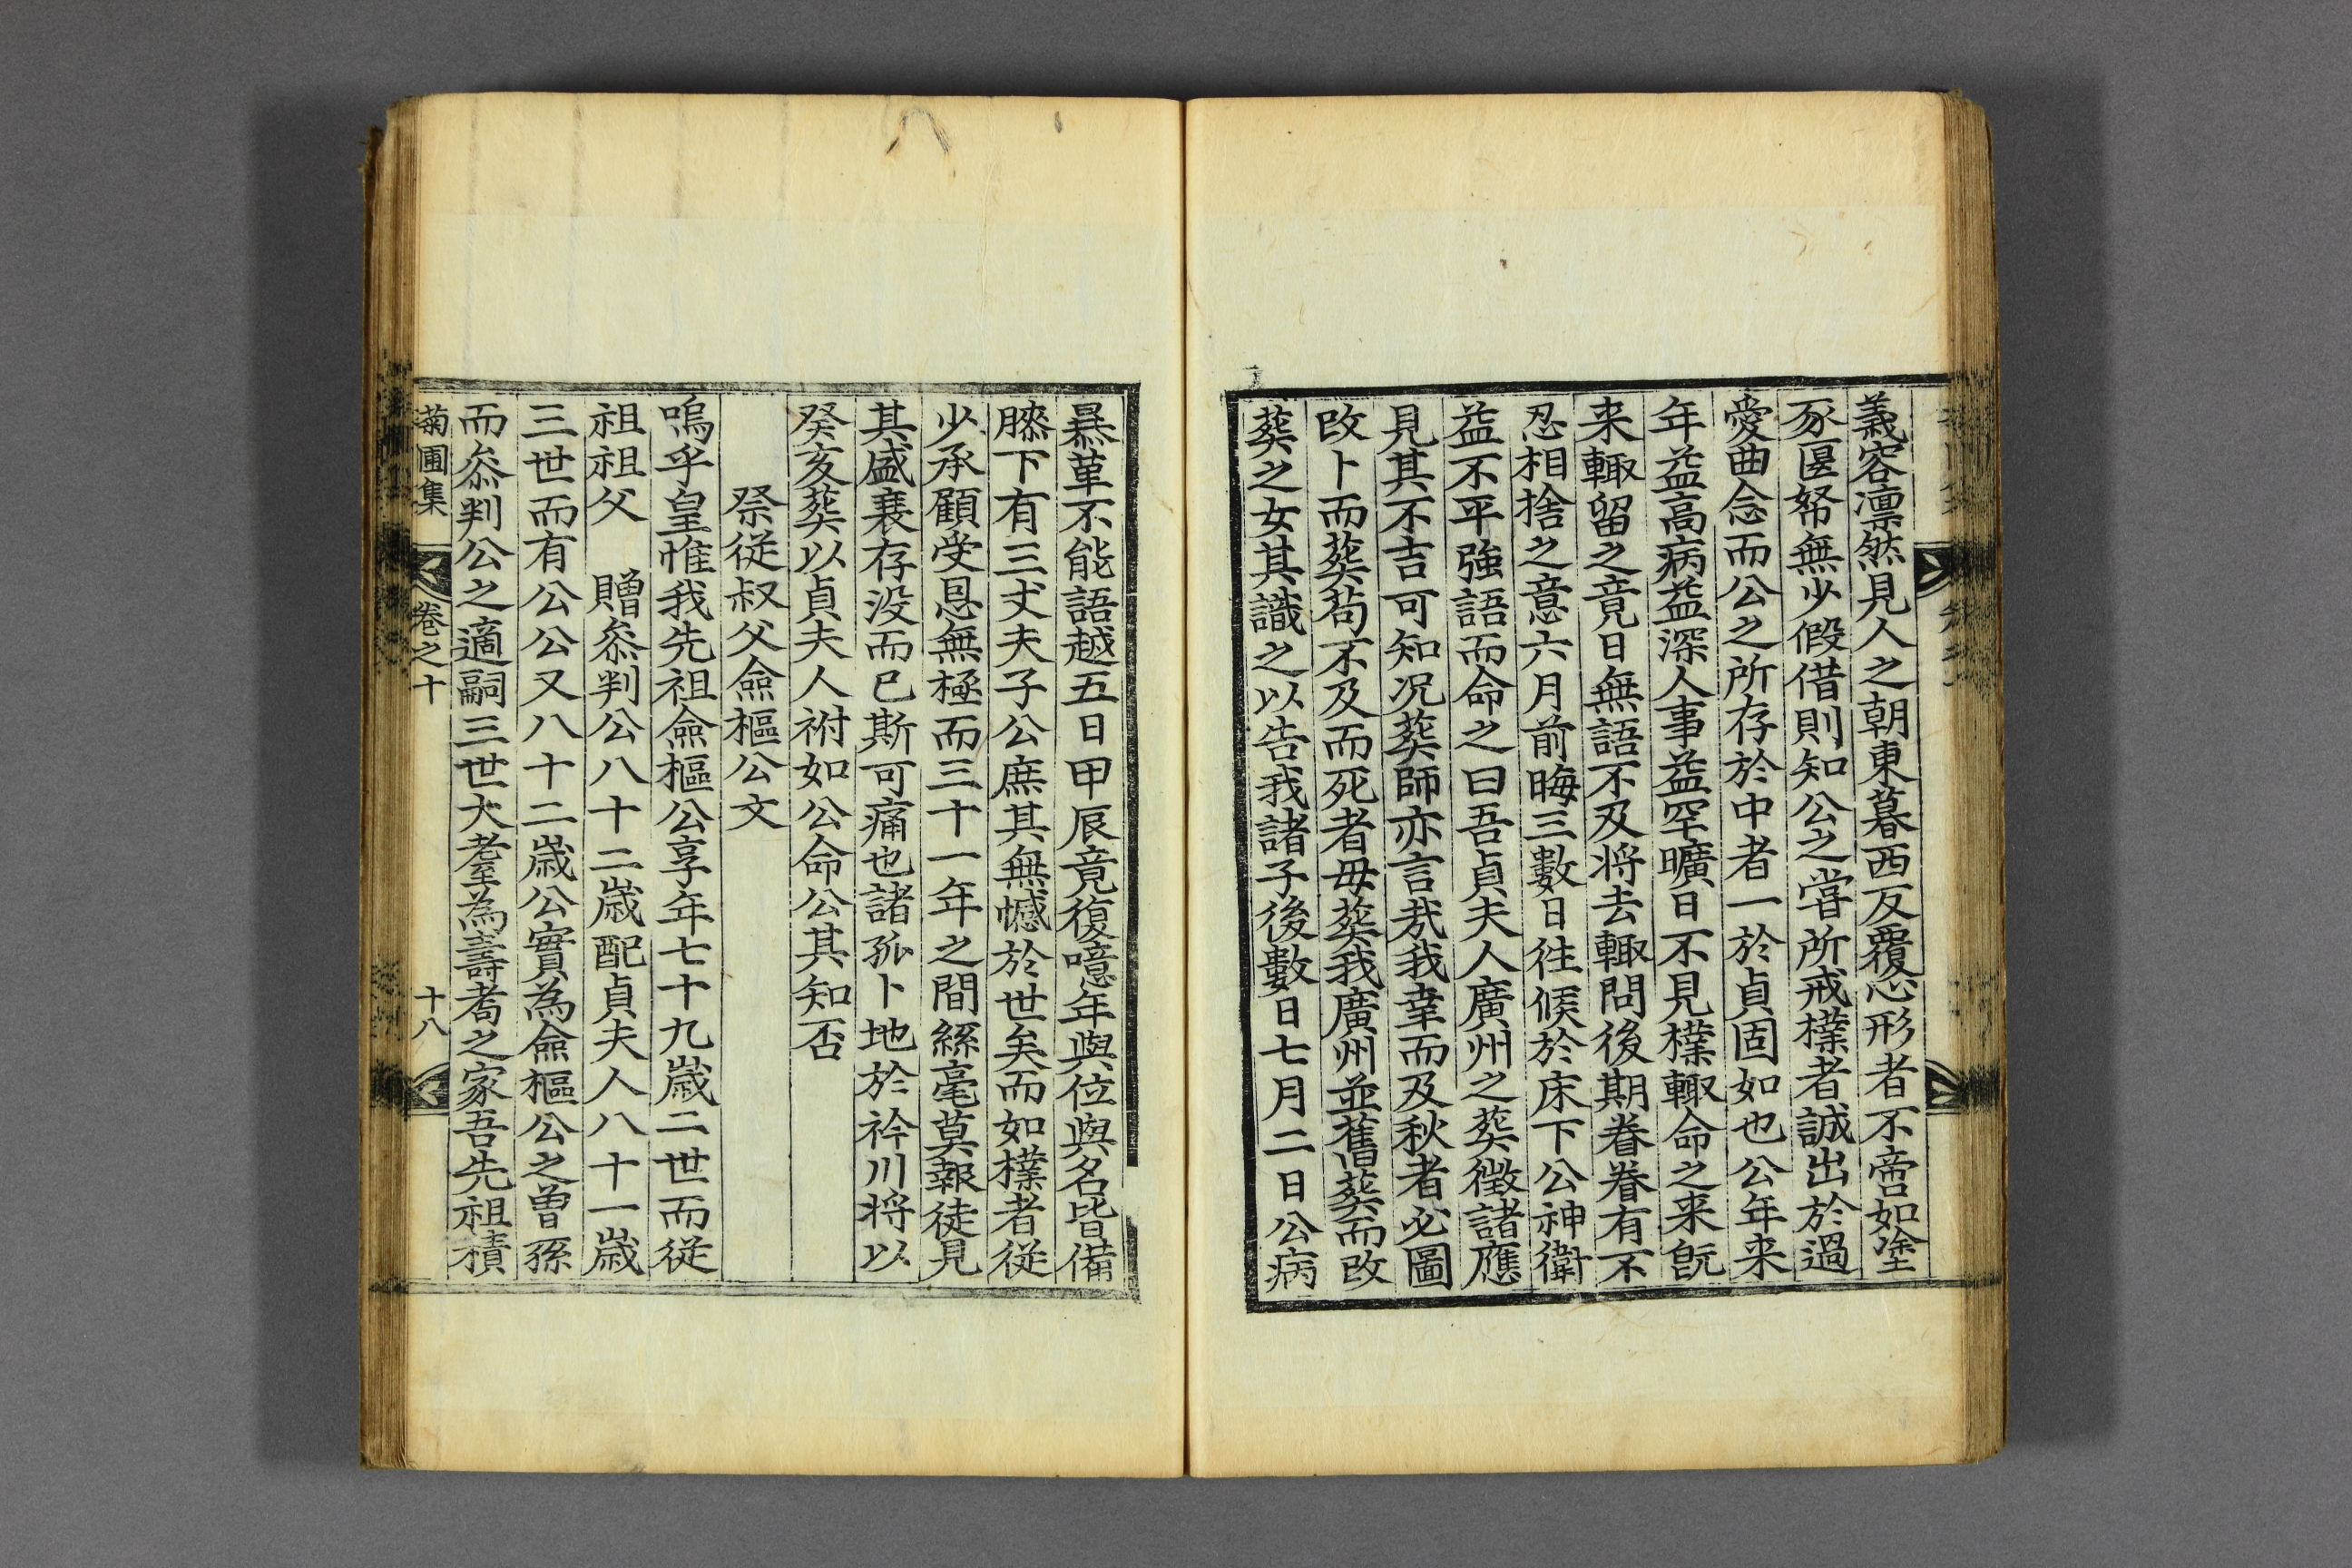 義容凛然見人之朝東暮西反覆心形者不啻如塗
豕偃帑無少假借則知公之嘗所戒樸者誠出於過
愛曲念而公之所存於中者一於貞固如也公年来
年益高病益深人事益罕曠日不見樸輙命之来旣
来輙留之竟日無語不及将去輙問後期眷眷有不
忍相捨之意六月前晦三數日徃候於床下公神衛
益不平強語而命之曰吾貞夫人廣州之葬徵諸應
見其不吉可知况葬師亦言㢤我幸而及秋者必圖
改卜而葬苟不及而死者毋葬我廣州並舊葬而改
葬之女其識之以告我諸子後數日七月二日公病
暴革不能語越五日甲辰竟復噫年與位與名皆備
膝下有三丈夫子公庶其無憾於世矣而如樸者從
少承顧受恩無極而三十一年之間絲毫莫報徒見
其盛衰存没而已斯可痛也諸孤卜地於衿川将以
癸亥葬以貞夫人祔如公命公其知否
祭從叔父僉樞公文
嗚乎皇惟我先祖僉樞公享年七十九歲二世而從
祖祖父 贈叅判公八十二歲配貞夫人八十一歲
三世而有公公又八十二歲公實為僉樞公之曽孫
而叅判公之適嗣三世大耋為壽耈之家吾先祖積
菊圃集 卷之十 十八